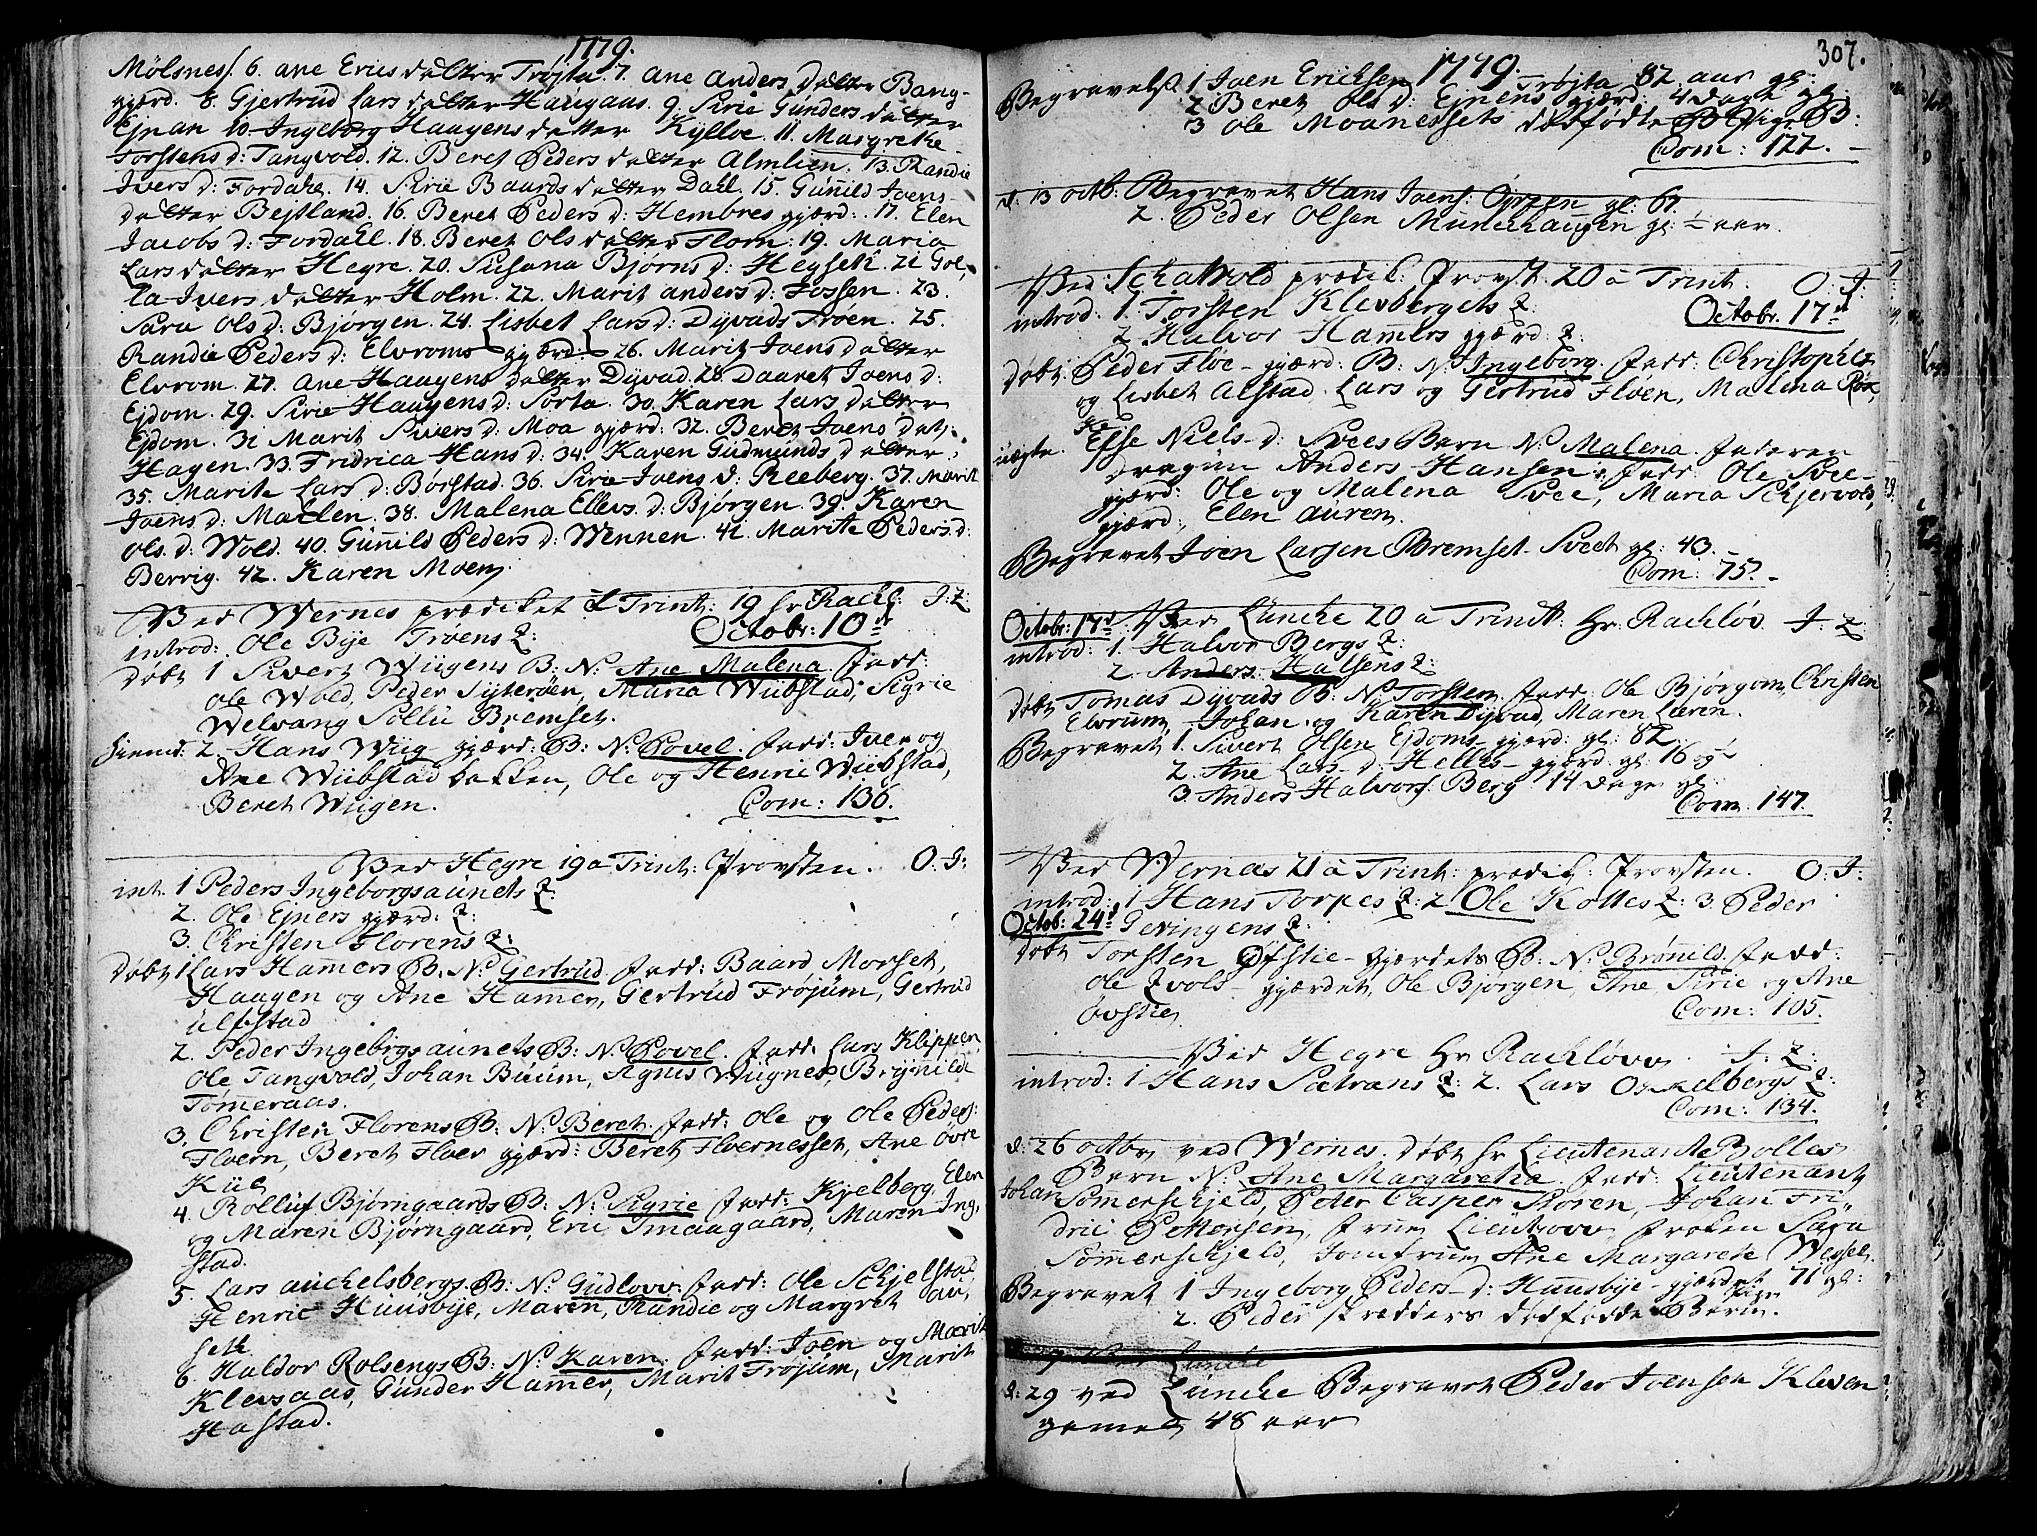 1779.
Mölsness. 6. ane Erics datter Trøjta. 7. Ane Anders datter Bang-
gjærd. 8. Gjertrud Lars datter Haugaas. 9. Sirie Gunders datter
Ejnan 10. Ingeborg Haagens datter Kylloe. 11. Margrethe
Torstens d: Tangvold. 12. Beret Peders datter Almlien. 13. Randie
Ivers d: Fordahl. 14. Sirie Baards datter Dahl. 15. Gunild Joens
datter Bejtland. 16. Beret Peders d: Hembres gjærd. 17. Elen
Jacobs d: Fordahl. 18. Beret Ols datter Flora: 19. Maria
Lars datter Hegre. 20. Susana Bjørns d: Hegseth. 21 Gol,
la Ivers datter Holm. 22. Marit anders d: Fossen. 23.
Sara Ols d: Bjørgen. 24. Lisbet Lars d: Dyvads Trøen. 25.
Randie Peders d: Elvroms gjærd: 26. Marit Joens datter
Elvrom. 27. Ane Haagens datter Dyvad. 28. Daaret Joens d:
Ejdom. 29. Sirie Haagens d: Sorta. 30. Karen Lars datter
Ejdom. 31 Marit Sivers d: Moa gjærd: 32. Beret Joens dat,
Hagen. 33. Fridrica Hans d: 34. Karen Gudmunds datter,
35. Marite Lars d: Børstad. 36. Sirie Joens d: Reeberg. 37. Marit
Joens d: Mælen. 38. Malena Ellevs d: Bjørgen. 39. Karen
Ols. d: Wold. 40. Gunild Peders d: Wennen. 41. Marite Peders d:
Berrig. 42. Karen Moen
Ved Wernes prædiket Trint: 19 hr Rachl: J: Z:
introd: Ole Bye Trøens Q: Octobr: 10d
døbt 1 Sivert Wügens B: N: Ane Malena. fadd:
Ole Wold, Peder Sÿterøen, Maria Wübstad, Sigrie
Welvang Sollü Bremset.
hiemd: 2 Hans Wüg gjærd: B: N: Povel. fadd: Iver og
Ane Wübstad bakken, Ole og Henric Wübstad,
Beret Wügen. Com: 136.
Ved Hegre 19 a Trint: Provsten. O: J:
int. 1 Peders Ingeborgsaunets Q:
2. Ole Ejners gjærd: Q:
3. Christen Florens Q:
døbt 1 Lars Hamers B: N: Gertrud fadd: Baard Morset,
Haagen og Ane Hamer, Gertrud Frøjum, Gertrud
Ulfstad
2. Peder Ingebrigsaunets B: N: Povel. fadd: Lars Klippen
Ole Tangvold, Johan Buum, Agnis Wügnes, Brynild
Tømeraas.
3. Christen Florens B: N: Beret. fadd: Ole og Ole Peders:
Floern, Beret Floer gjærd: Beret Floernesset, Ane Övre
Kil
4. Rolluf Bjørngaards B: N: Sigrie fadd: Kjelberg, Elen
og Maren Bjørngaard, Eric Smaagaard, Maren Ing,
stad.
5. Lars auchelsbergs B: N: Gudlovv. fadd: Ole Schjelstad
Henric Huusbÿe, Maren, Randie og Margret au,
seth
6. Haldor Rolsengs B: N: Karen. fadd: Joen og Marit
Klevsaas, Gunder Hamer, Marit Frøjum, Marit
Hastad.
307.
1779.
Begravelse 1 Joen Ericksen Trøjta 82 aar gl:
2 Beret Ols d: Ejnens gjærd: 4 dage gl:
3 Ole Moanessets dødfødte Pige B:
Com: 122.
d: 13 octb: Begravet Hans Joens: Öyrzen gl: 67.
2. Peder Olsen Munchhaugen gl: ½ aar.
Ved Schatvold prædik: Provst: 20 a Trint. O: J:
introd: 1. Torsten Klevbergets Q: Octobr. 17d
2 Halvor Hamers gjærd: Q:
døbt Peder Floe gjærd: B: N: Ingeborg. fadd: Christopher
og Lisbet Alstad. Lars og Gertrud Floen, Malena Røk,
ke.
uægte. Esse Niels d: Svees Barn N: Malena. faderen
dragun Anders Hansen: fadd: Ole Svee
gjærd: Ole og Malena Svee, Maria Schjervold,
gjærd: Elen auren.
Begravet Joen Larsen Bremset Sveet gl: 43.
Com: 75.
Octobr: 17d Ved Luncke 20 a Trinit: Hr: Rachløv J: Z
introd: 1. Halvor Bergs Q:
2. Anders Halsens Q:
døbt Tomas Dyvads B: N: Torsten. fadd: Ole Bjørgom, Christen
Elvrum, Johan og Karen Dyvad, Maren Laren.
Begravet 1. Sivert Olsen Ejdoms gjærd: gl: 82.
2. Ane Lars d: Helles gjærd gl: 16
3. Anders Halvors: Berg 14 dage gl:
Com. 147.
Ved Wernes 21 a Trint: prædik: Provsten. O: J.
introd: 1 Hans Torpes Q: 2 Ole Koltes Q: 3. Peder
Octob: 24d Gevingens Q:
døbt Torsten Øfstie gjærdets B: N: Brønild. fadd:
Ole Qvols gjærdet, Ole Bjørgen, Ane, Sirie og Ane
Øvstie. Com: 105.
Ved Hegre Hr Rachløvv. J: Z:
introd: 1 Hans Sætrans Q: 2. Lars Onkelbergs Q:
Com: 134.
d: 26 octbr ved Wernes. døbt hr Lieutenant Bolles
Barn N: Ane Margaretha. fadd: Lieutenant
Johan Sømerschjeld, Peter Casper Roren, Johan Fri
dric Pettersen, frue Lieutzow frøken Sara
Sømerschjeld, Jomfrue Ane Margarete Wessel.
Begravet 1 Ingeborg Peders d: Huusbÿe gjærdet 71 gl:
2. Peder skredders dødfødde Barn.
d: 29 ved Luncke Begravet Peder Joensen Kleven
gamel 48 aar